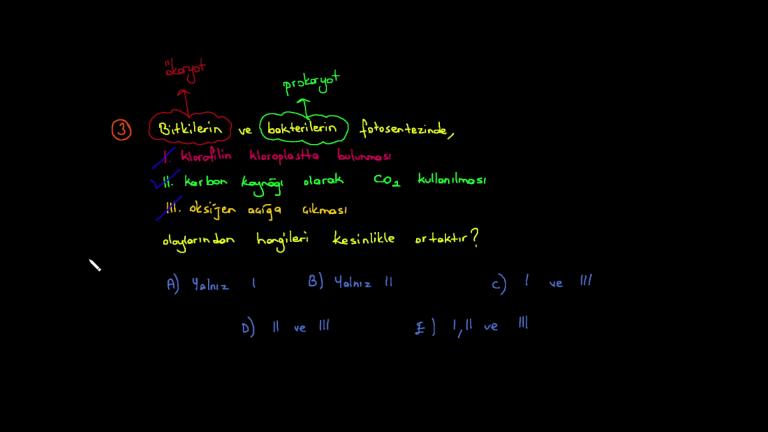 ökaryot
prokaryot
3 Bitkilerin ve bakterilerin fotosentezinde,
I. klorofilin kloroplastta bulunması
II. karbon kaynağı olarak CO2 kullanılması
III. oksijen açığa çıkması
olaylarından hangileri kesinlikle ortaktır?
A) Yalnız I B) Yalnız II C) I ve III
D) II ve III E) I, II ve III